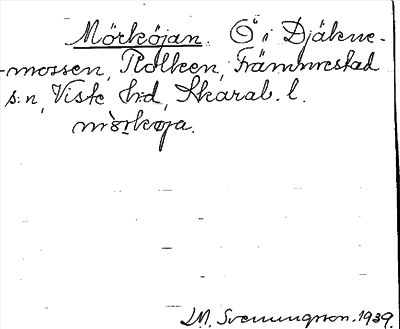 Mörköjan. Ö i Djäkne-
-mossen, Rolken, Främmestad
s:n, Viste hd, Skarab. l.
mörkøja.
M. Svenungsson. 1939.